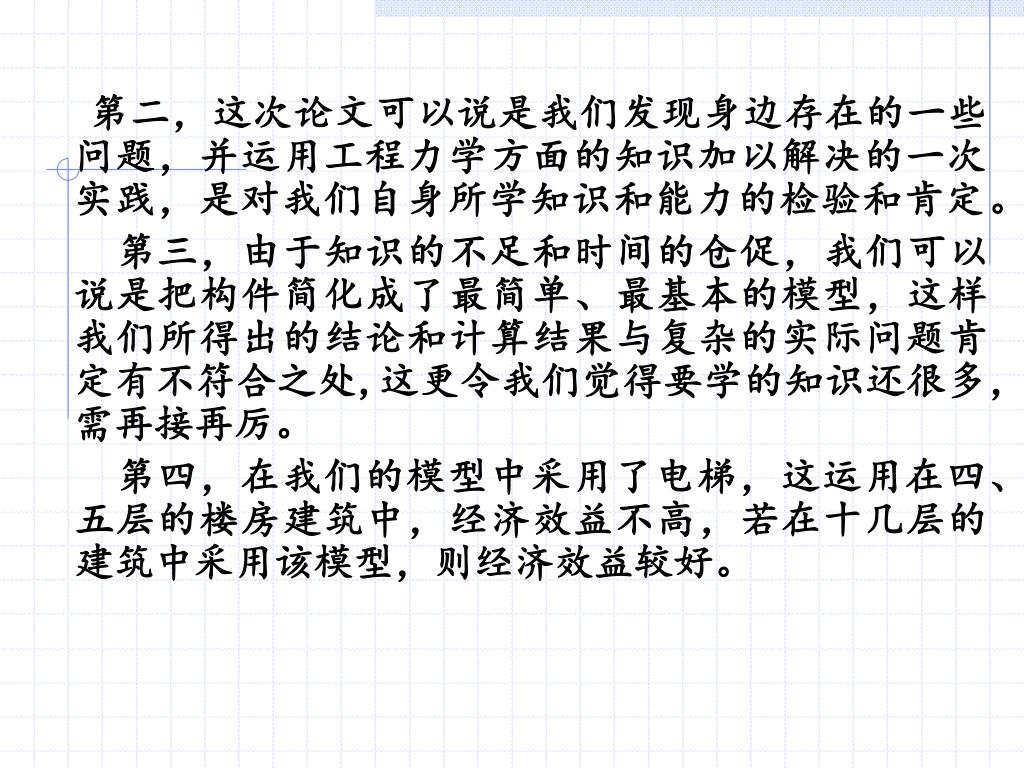 第二，这次论文可以说是我们发现身边存在的一些
问题，并运用工程力学方面的知识加以解决的一次
实践，是对我们自身所学知识和能力的检验和肯定。
第三，由于知识的不足和时间的仓促，我们可以
说是把构件简化成了最简单、最基本的模型，这样
我们所得出的结论和计算结果与复杂的实际问题肯
定有不符合之处,这更令我们觉得要学的知识还很多，
需再接再厉。
第四，在我们的模型中采用了电梯，这运用在四、
五层的楼房建筑中，经济效益不高，若在十几层的
建筑中采用该模型，则经济效益较好。